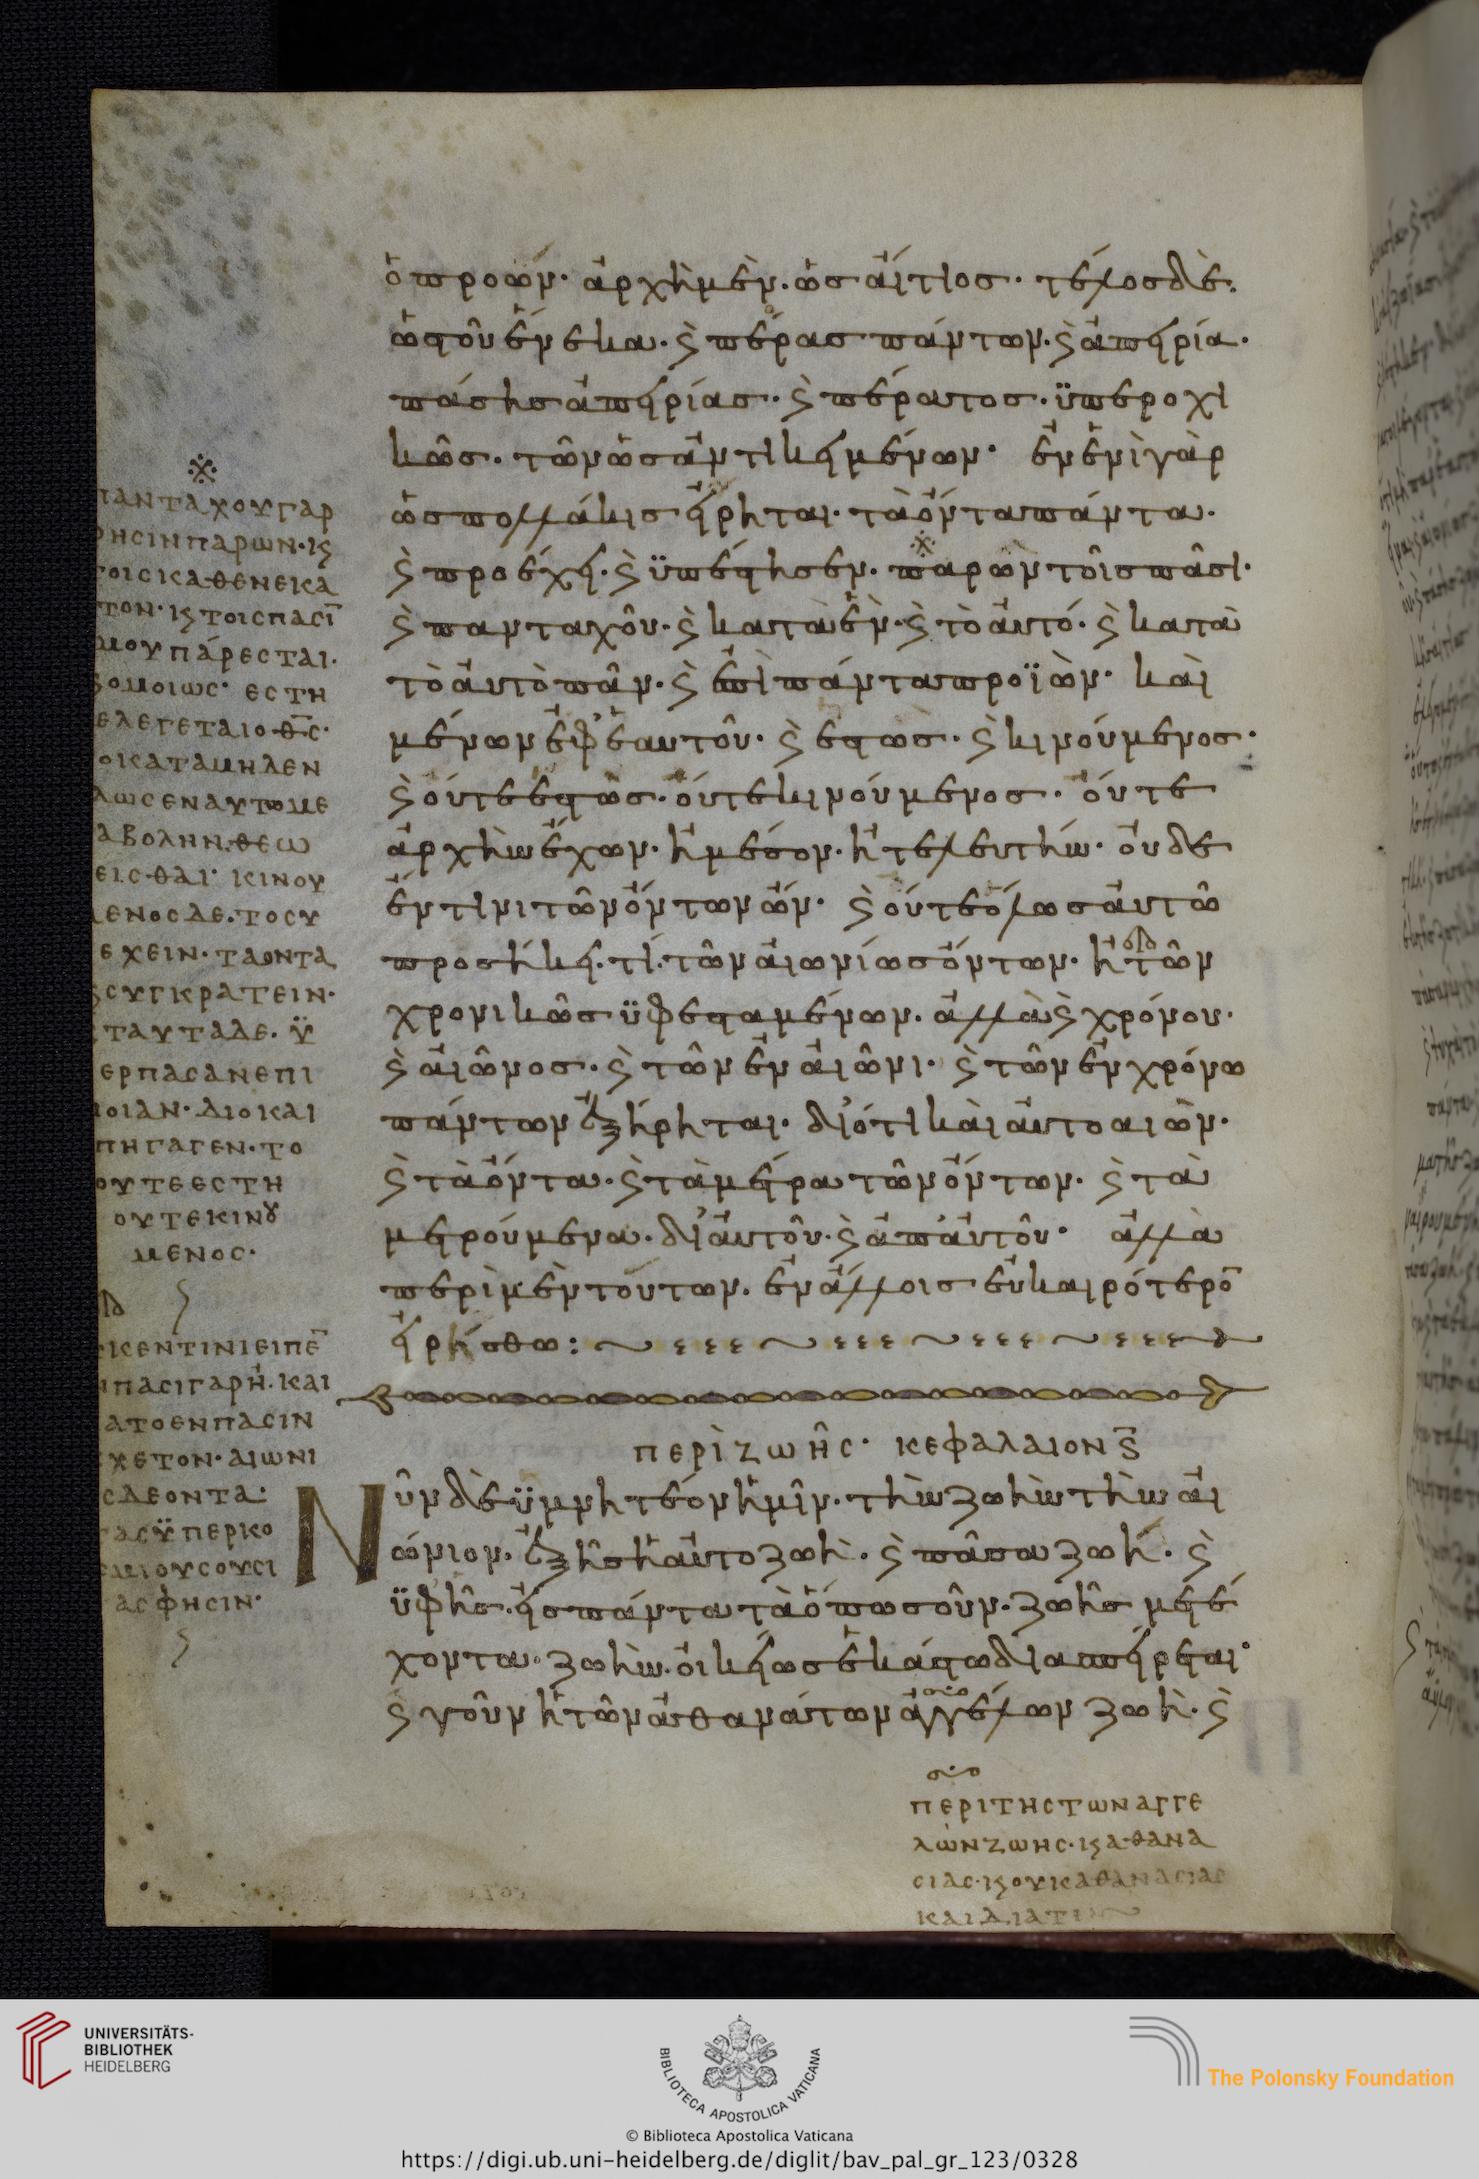 ὁ προών· ἀρχὴ μὲν. ὡς αἴτιος· τέλος δὲ.
ὡς τοῦ ἕνεκα· ϛ πέρας πάντων· ϛ ἀπειρία·
πάσης ἀπειρίας· ϛ πέρατος· ϋπεροχι
κῶς· τῶν ὡς ἀντικειμένων· ἐν ἑνὶ γὰρ
ὡς πολλάκις εἴρηται· τὰ ὄντα πάντα·
ϛ προέχει· ϛ ϋπέστησεν· παρὼν τοῖς πᾶσι·
ϛ πανταχοῦ· ϛ κατὰ ἓν· ϛ τὸ αὐτό· ϛ κατὰ
τὸ αὐτὸ πᾶν· ϛ ἐπὶ πάντα προϊὼν· καὶ
μένων ἐφ' ἑαυτοῦ· ϛ ἑστὼς· ϛ κινούμενος·
ϛ οὔτε ἑστὼς· οὔτε κινούμενος· οὔτε
ἀρχὴν ἔχων· ἢ μέσον· ἢ τελευτήν· οὐδὲ
ἔν τινι τῶν ὄντων ὤν· ϛ οὔτε ὅλως αὐτῶ
προσήκει· τί· τῶν αἰωνίως ὄντων· ἢ τῶν
χρονικῶς ϋφεσταμένων· ἀλλὰ ϛ χρόνου·
ϛ αἰῶνος· ϛ τῶν ἐν αἰῶνι· ϛ τῶν ἐν χρόνω
πάντων ἐξήρηται· διότι καὶ αὐτοαιὼν·
ϛ τὰ ὄντα· ϛ τὰ μέτρα τῶν ὄντων· ϛ τὰ
μετρούμενα· δι' αὐτοῦ· ϛ ἀπ' αὐτοῦ· ἀλλὰ
περὶ μὲν τούτων. ἐν ἄλλοις εὐκαιρότερο̅
εἰρήσθω:
περὶ ζωῆς· κεφαλαιον ϛ̅
Νῦν δὲ ϋμνητέον ἡμῖν· τὴν ζωὴν τὴν αἰ
ώνιον· ἐξ ἧς ἡ αὐτοζωὴ· ϛ πᾶσα ζωή· ϛ
ϋφ' ἧς· εἰς πάντα τὰ ὁπωσοῦν· ζωῆς μετέ
χοντα· ζωὴν· οἰκείως ἑκάστω διασπείρεται·
ϛ γοῦν ἡ τῶν ἀθανάτων ἀγγέλων ζωὴ· ϛ
ΠΑΝΤΑΧΟΥΓΑΡ
ΦΗΣΙΝ ΠΑΡΩΝ· Κϛ
ΤΟΙΣ ΚΑΘΕΝ ΕΚΑ
ΤΟΝ· Κϛ ΤΟΙΣ ΠΑΣΙ̅
ΜΟΥ ΠΑΡΕΣΤΑΙ·
ϛ ΟΜΟΙΩΣ· ΕΣΤΗ
ΕΛΕΓΕΤΑΙ Ο Θ̅Σ̅·
Ο ΚΑΤΑ ΜΗΔΕΝ
ΛΩΣ ΕΝ ΑΥΤΩ ΜΕ
ΑΒΟΛΗΝ ΘΕΩ
ΕΙΣΘΑΙ· ΚΙΝΟΥ
ΕΝΟΣ ΔΕ. ΤΟ ΣΥ
ΕΧΕΙΝ· ΤΑ ΟΝΤΑ
ϛ ΣΥΓΚΡΑΤΕΙΝ·
ΤΑΥΤΑ ΔΕ. Ϋ
ΕΡ ΠΑΣΑΝ ΕΠΙ
ΟΙΑΝ· ΔΙΟ ΚΑΙ
ΠΗΓΑΓΕΝ· ΤΟ
ΟΥΤΕ ΕΣΤΗ
ΟΥΤΕ ΚΙΝȢ
ΜΕΝΟΣ·
ΚΕΝ ΤΙΝΙ ΕΙΠΕ̅
ΠΑΣΙ ΓΑΡ ΗΝ· ΚΑΙ
ΑΤΟ ΕΝ ΠΑΣΙΝ
ΧΕΤΟΝ· ΑΙΩΝΙ
Σ ΔΕ ΟΝΤΑ·
ΑΣ ΫΠΕΡΚΟ
ΜΙΟΥΣ ΟΥΣΙ
ΑΣ ΦΗΣΙΝ·
ΠΕΡΙ ΤΗΣ ΤΩΝ ΑΓΓΕ
ΛΩΝ ΖΩΗΣ· Κϛ ΑΘΑΝΑ
ΣΙΑΣ· Κϛ ΟΥΚ ΑΘΑΝΑΣΙΑΣ
ΚΑΙ ΔΙΑ ΤΙ
UNIVERSITÄTS-
BIBLIOTHEK
HEIDELBERG
BIBLIOTECA APOSTOLICA VATICANA
The Polonsky Foundation
© Biblioteca Apostolica Vaticana
https://digi.ub.uni-heidelberg.de/diglit/bav_pal_gr_123/0328